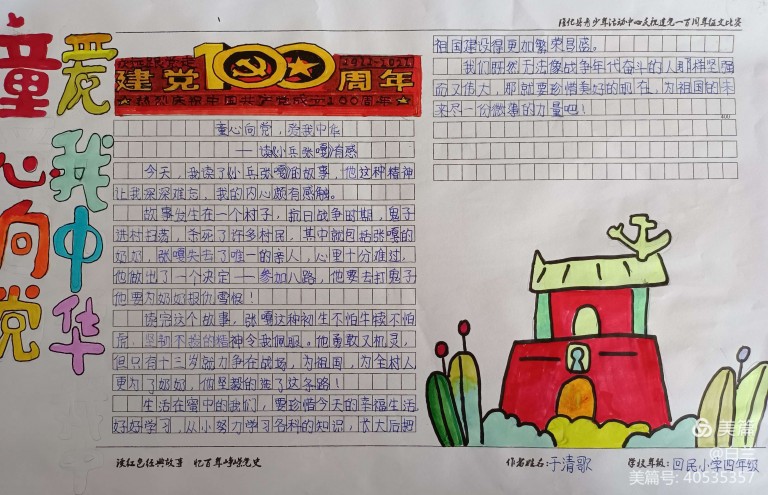 怀化县青少年活动中心庆祝建党一百周年征文比赛
童心向党
爱我中华
1921-2021
建党100周年
热烈庆祝中国共产党成立100周年
童心向党，爱我中华
——读《小兵张嘎》有感
今天，我读了《小兵张嘎》的故事，他这种精神
让我深深难忘，我的内心颇有感触。
故事发生在一个村子，抗日战争时期，鬼子
进村扫荡，杀死了许多村民，其中就包括张嘎的
奶奶，张嘎失去了唯一的亲人，心里十分难过，
他做出了一个决定——参加八路，他要去打鬼子
他要为奶奶报仇雪恨！
读完这个故事，张嘎这种初生不怕牛犊不怕
虎，坚韧不拔的精神令我佩服。他勇敢又机灵，
但只有十三岁就力争在战场，为祖国，为全村人
更为了奶奶，他坚毅的选了这条路！
生活在蜜中的我们，要珍惜今天的幸福生活，
好好学习，从小努力学习各科的知识，长大后把
祖国建设得更加繁荣昌盛。
我们既然无法像战争年代奋斗的人那样坚强
而又伟大，那就要珍惜美好的现在，为祖国的未
来尽一份微薄的力量吧！
400
读红色经典故事 忆百年峥嵘党史
作者姓名：于清歌
学校年级：回民小学四年级
美篇
@白兰
美篇号：40535357